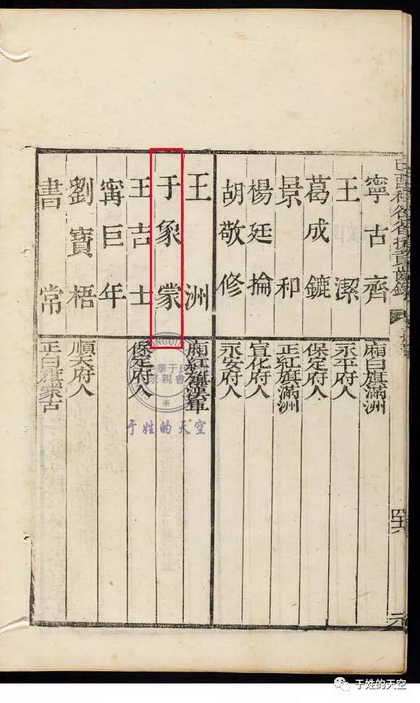 寧古齊 廂白旗滿洲
王潔 永平府人
葛成鑣 保定府人
景和 正紅旗滿洲
楊廷掄 宣化府人
胡敬修 永安府人
王洲 廂紅旗漢軍
于象蒙
王吉士 保定府人
甯巨年
劉寶梧 順天府人
書常 正白旗蒙古
于姓的天空
于姓的天空